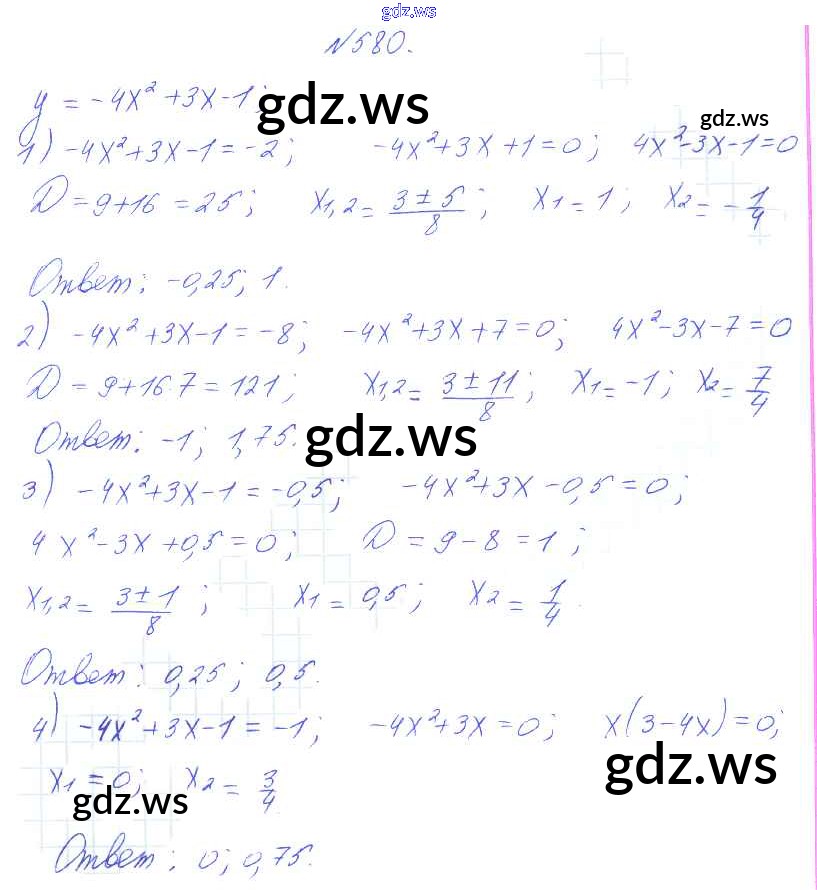 gdz.ws
N580.
y = -4x² + 3x - 1; gdz.ws
1) -4x² + 3x - 1 = -2; -4x² + 3x + 1 = 0; 4x² - 3x - 1 = 0 gdz.ws
D = 9 + 16 = 25; x₁,₂ = (3 ± 5)/8; x₁ = 1; x₂ = -1/4
Ответ: -0,25; 1.
2) -4x² + 3x - 1 = -8; -4x² + 3x + 7 = 0; 4x² - 3x - 7 = 0
D = 9 + 16·7 = 121; x₁,₂ = (3 ± 11)/8; x₁ = -1; x₂ = 7/4
Ответ: -1; 1,75. gdz.ws
3) -4x² + 3x - 1 = -0,5; -4x² + 3x - 0,5 = 0;
4x² - 3x + 0,5 = 0; D = 9 - 8 = 1;
x₁,₂ = (3 ± 1)/8; x₁ = 0,5; x₂ = 1/4.
Ответ: 0,25; 0,5.
4) -4x² + 3x - 1 = -1; -4x² + 3x = 0; x(3 - 4x) = 0;
x₁ = 0; x₂ = 3/4. gdz.ws
gdz.ws
Ответ: 0; 0,75.